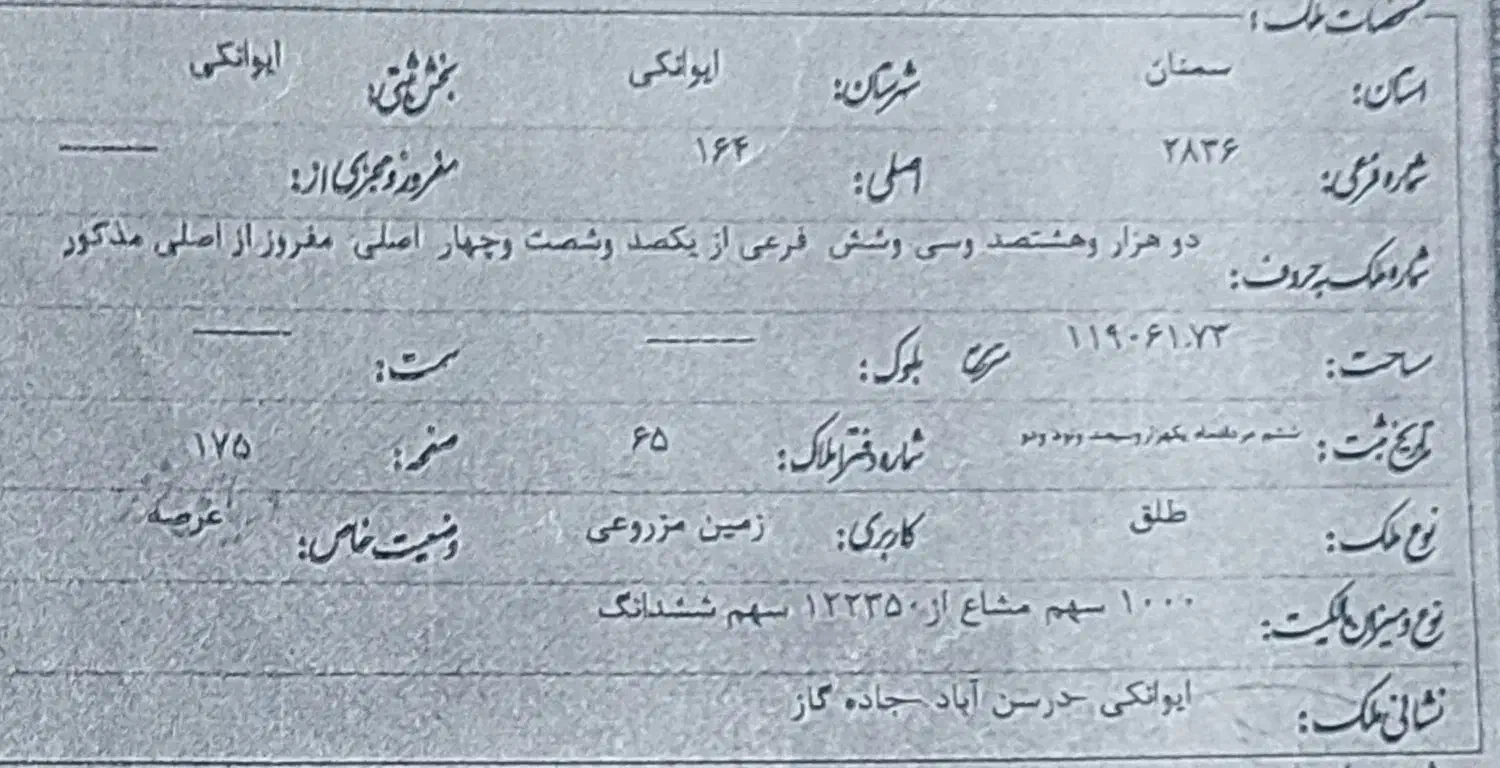 مشخصات ملک:
استان: سمنان شهرستان: ایوانکی بخش ثبتی: ایوانکی
شماره فرعی: ۲۸۳۶ اصلی: ۱۶۴ مفروز و مجزی از: ———
شماره ملک به حروف: دو هزار وهشتصد وسی وشش فرعی از یکصد وشصت وچهار اصلی مفروز از اصلی مذکور
مساحت: ۱۱۹۰۶۱.۷۳ متر مربع بلوک: ——— سمت: ———
تاریخ ثبت: ششم مردادماه یکهزار وسیصد ونود ودو شماره دفتر املاک: ۶۵ صفحه: ۱۷۵
نوع ملک: طلق کاربری: زمین مزروعی وضعیت خاص: عرصه
نوع و میزان مالکیت: ۱۰۰۰ سهم مشاع از ۱۲۲۳۵۰ سهم ششدانگ
نشانی ملک: ایوانکی -درسن آباد -جاده گاز